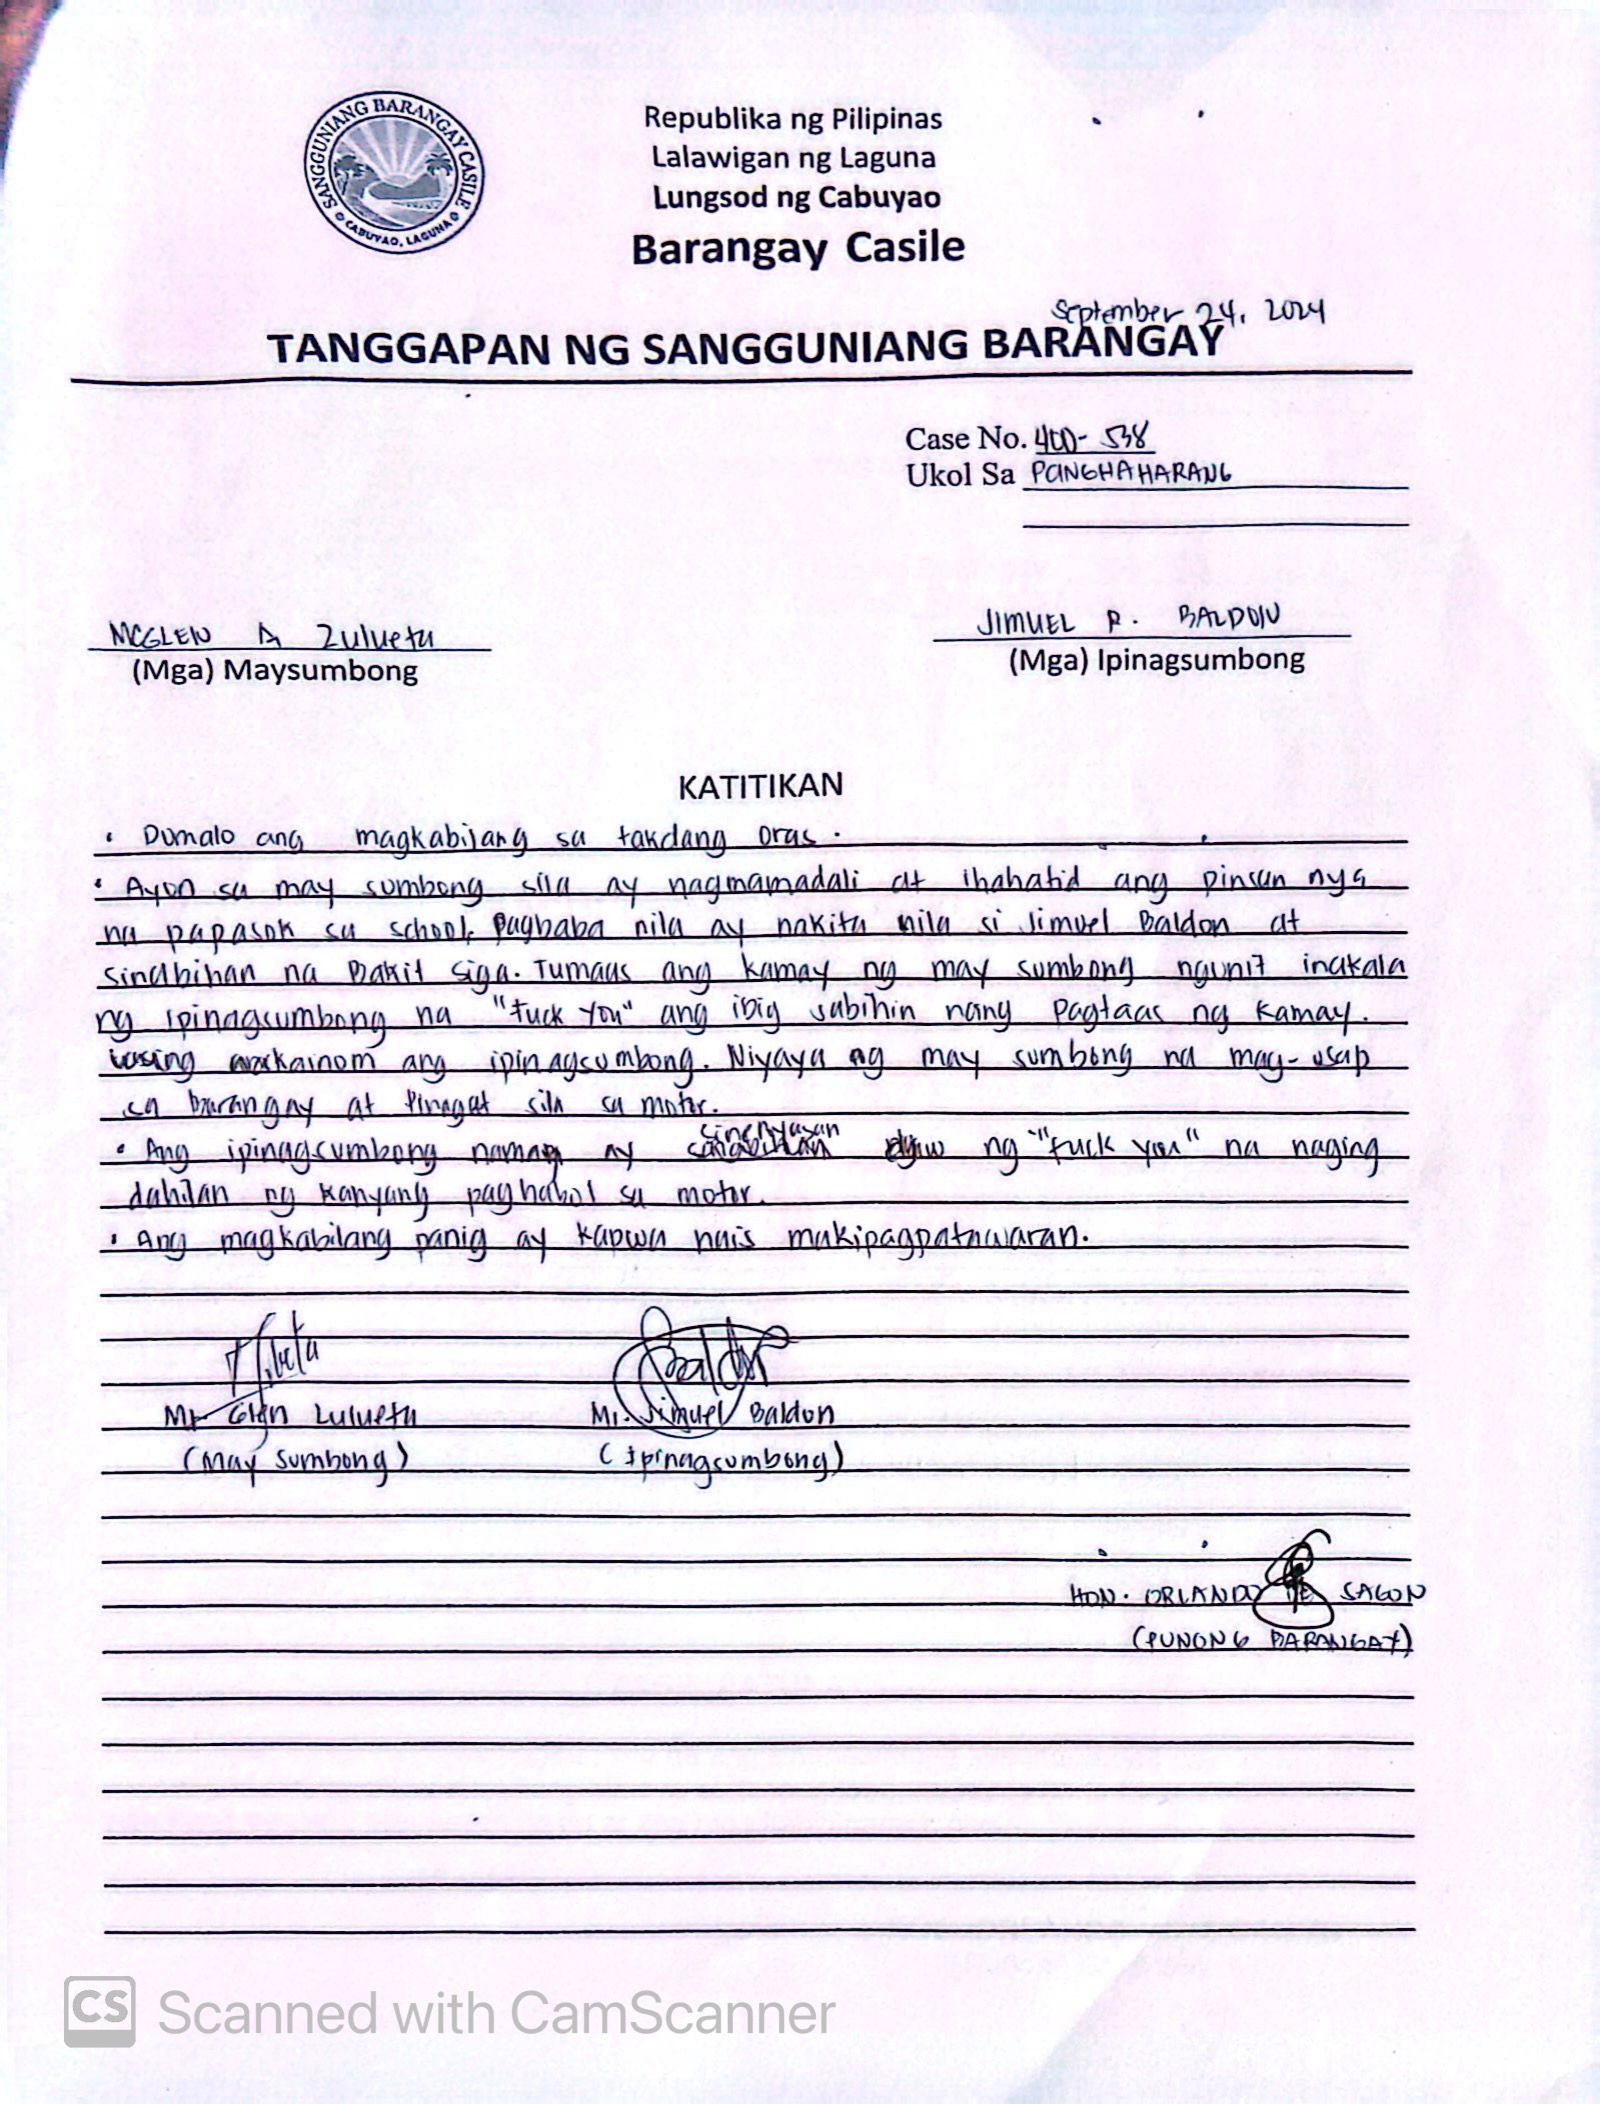 SANGGUNIANG BARANGAY CASILE
CABUYAO, LAGUNA
Republika ng Pilipinas
Lalawigan ng Laguna
Lungsod ng Cabuyao
Barangay Casile
September 24, 2024
TANGGAPAN NG SANGGUNIANG BARANGAY
Case No. 400-538
Ukol Sa PANGHAHARANG
MCGLEN A Zulueta
(Mga) Maysumbong
JIMUEL R. BALDON
(Mga) Ipinagsumbong
KATITIKAN
• Dumalo ang magkabijang sa takdang oras.
• Ayon sa may sumbong sila ay nagmamadali at ihahatid ang pinsan nya
na papasok sa school. Pagbaba nila ay nakita nila si Jimuel Baldon at
sinabihan na Bakit siga. Tumaas ang kamay ng may sumbong ngunit inakala
ng ipinagsumbong na "Fuck You" ang ibig sabihin nang Pagtaas ng kamay.
Lasing nakainom ang ipinagsumbong. Niyaya ng may sumbong na mag-usap
sa barangay at pinagat sila sa motor.
• Ang ipinagsumbong naman ay sinenyasan daw ng "Fuck you" na naging
dahilan ng kanyang paghabol sa motor.
• Ang magkabilang panig ay kapwa nais makipagpatawaran.
Mr Glen Lulueta
(May Sumbong)
Mr. Jimuel Baldon
(Ipinagsumbong)
HON. ORLANDO DE SAGON
(PUNONG BARANGAY)
CS Scanned with CamScanner